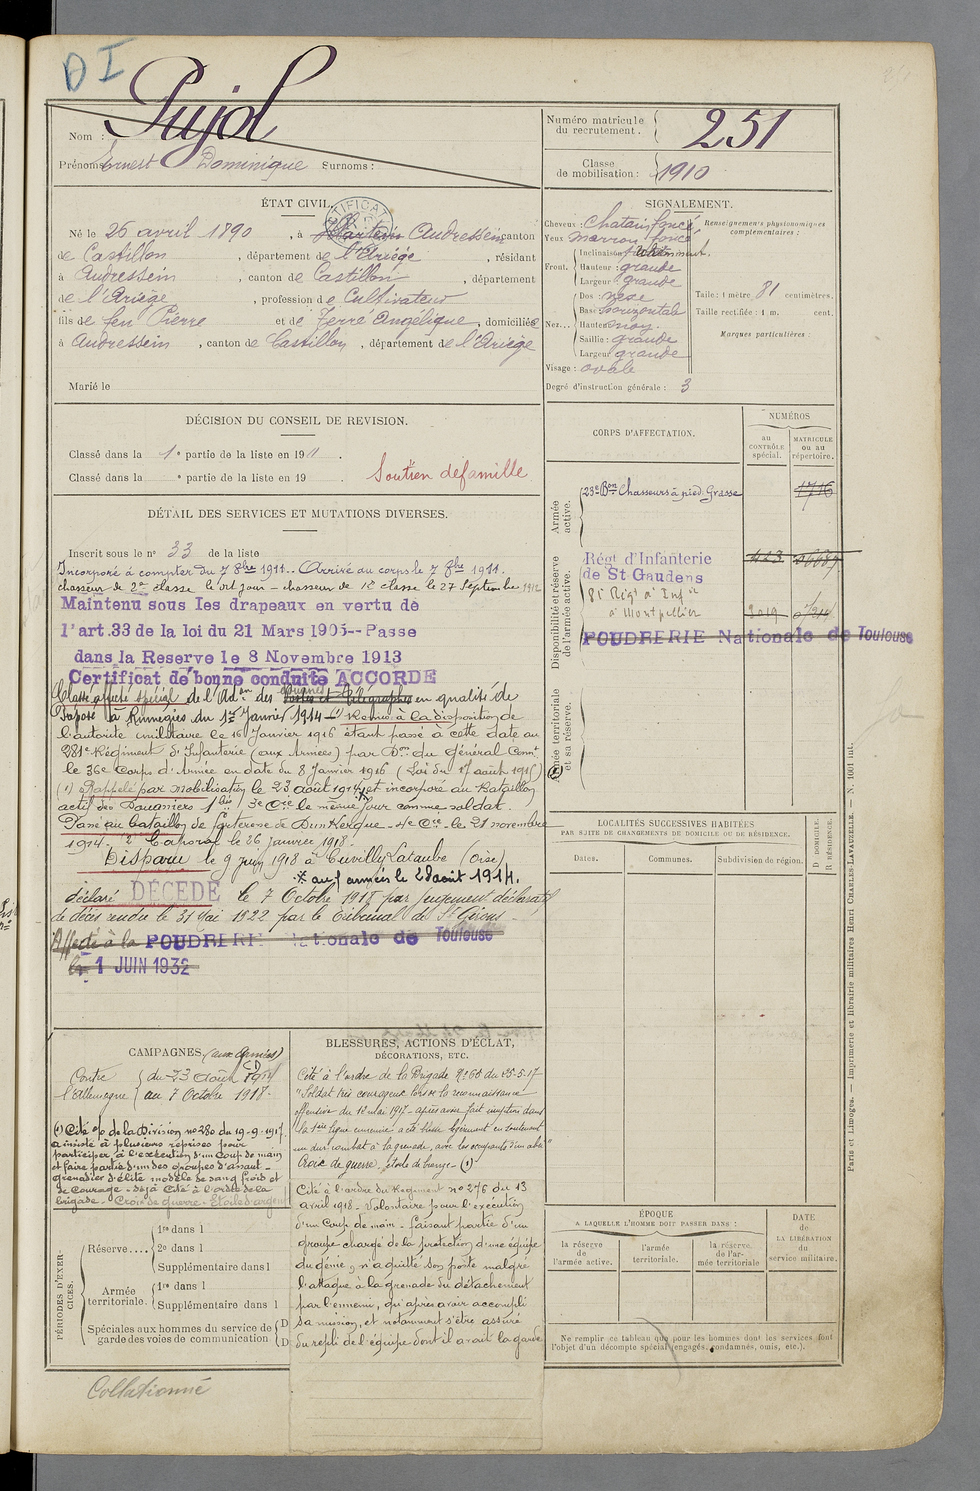 D I
Pujol
Nom :
Prénoms : Ernest Dominique Surnoms :
Numéro matricule
du recrutement.
251
Classe
de mobilisation :
1910
ÉTAT CIVIL.
Né le 26 avril 1890 , à Audressein canton
de Castillon , département de l'Ariège , résidant
à Audressein , canton de Castillon , département
de l'Ariège , profession de Cultivateur
fils de feu Pierre et de Ferré Angélique , domiciliés
à Audressein , canton de Castillon , département de l'Ariège
Marié le
SIGNALEMENT.
Cheveux : Chatain foncé
Yeux marron foncé
Inclinaison
Front. Hauteur : grande
Largeur : grande
Dos :
Base horizontale
Nez... Hauteur moy.
Saillie : grande
Largeur grande
Visage : ovale
Degré d'instruction générale : 3
Renseignements physionomiques
complémentaires :
Taille : 1 mètre 81 centimètres.
Taille rectifiée : 1 m. cent.
Marques particulières :
DÉCISION DU CONSEIL DE REVISION.
Classé dans la 1e partie de la liste en 1911 .
Classé dans la e partie de la liste en 19 .
Soutien de famille
DÉTAIL DES SERVICES ET MUTATIONS DIVERSES.
Inscrit sous le no 33 de la liste
Incorporé à compter du 7 8bre 1911. - Arrivé au corps le 7 8bre 1911.
chasseur de 2e classe le dit jour - chasseur de 1e classe le 27 Septembre 1912
Maintenu sous les drapeaux en vertu de
l'art.33 de la loi du 21 Mars 1905-- Passe
dans la Reserve le 8 Novembre 1913
Certificat de bonne conduite ACCORDE
Classé affecté spécial de l'Adon des Douanes Postes et Télégraphes en qualité de
Préposé à Rumegies du 1er Janvier 1914 - Remis à la disposition de
l'autorité militaire le 16 Janvier 1916 étant passé à cette date au
281e Régiment d'Infanterie (aux Armées) par Don du Général Comt
le 36e Corps d'Armée en date du 8 Janvier 1916 (Loi du 17 août 1915)
(1) Rappelé par mobilisation le 23 août 1914 et incorporé au Bataillon
actif des Douaniers 1 bis, 3e Cie le même jour comme soldat.
Passé au bataillon de forteresse de Dunkerque - 4e Cie - le 21 novembre
1914. Caporal le 26 janvier 1918.
Disparu le 9 juin 1918 à Cuvilly Lataule (Oise)
* aux armées le 28 août 1914.
déclaré DÉCÉDÉ le 7 Octobre 1918 par jugement déclaratif
de décès rendu le 31 Mai 1922 par le Tribunal de St Girons
Affecté à la POUDRERIE Nationale de Toulouse
le 1 JUIN 1932
CORPS D'AFFECTATION.
NUMÉROS
au
CONTRÔLE
spécial.
MATRICULE
ou au
répertoire.
Armée
active.
23e Bon Chasseurs à pied. Grasse
1716
Disponibilité et réserve
de l'armée active.
Régt d'Infanterie
de St Gaudens
423
81e Régt d'Infie
à Montpellier
POUDRERIE Nationale de Toulouse
Armée territoriale
et sa réserve.
LOCALITÉS SUCCESSIVES HABITÉES
PAR SUITE DE CHANGEMENTS DE DOMICILE OU DE RÉSIDENCE.
Dates. Communes. Subdivision de région.
D DOMICILE.
R RÉSIDENCE.
CAMPAGNES (aux Armées)
Contre
l'Allemagne
du 23 Août 1914
au 7 Octobre 1918.
(1) Cité o/o de la Division no 280 du 19-9-1917.
a insisté à plusieurs reprises pour
participer à l'exécution d'un coup de main
et faire partie d'un des groupes d'assaut -
grenadier d'élite modèle de sang froid et
de courage - déjà cité à l'ordre de la
brigade - Croix de guerre - Etoile d'argent
BLESSURES, ACTIONS D'ÉCLAT,
DÉCORATIONS, ETC.
Cité à l'ordre de la Brigade No 60 du 25-5-17
"Soldat très courageux lors de la reconnaissance
offensive du 12 mai 1917 - après avoir fait irruption dans
la 1ère ligne ennemie a été blessé légèrement en soutenant
un dur combat à la grenade, avec les occupants d'un abri"
Croix de guerre, étoile de bronze - (1)
Cité à l'ordre du Régiment no 276 du 13
avril 1918 - Volontaire pour l'exécution
d'un Coup de main - faisant partie d'un
groupe chargé de la protection d'une équipe
du génie, n'a quitté son poste malgré
l'attaque à la grenade du détachement
par l'ennemi, qu'après avoir accompli
sa mission, et notamment s'être assuré
du repli de l'équipe dont il avait la garde
PÉRIODES D'EXER-
CICES.
Réserve....
1re dans l
2e dans l
Supplémentaire dans l
Armée
territoriale.
1re dans l
Supplémentaire dans l
Spéciales aux hommes du service de
garde des voies de communication
D
D
ÉPOQUE
A LAQUELLE L'HOMME DOIT PASSER DANS :
la réserve
de
l'armée active.
l'armée
territoriale.
la réserve
de l'ar-
mée territoriale
DATE
de
LA LIBÉRATION
du
service militaire.
Ne remplir ce tableau que pour les hommes dont les services font
l'objet d'un décompte spécial (engagés, condamnés, omis, etc.).
Paris et Limoges. — Imprimerie et librairie militaires Henri CHARLES-LAVAUZELLE. — N. 1001 int.
Collationné